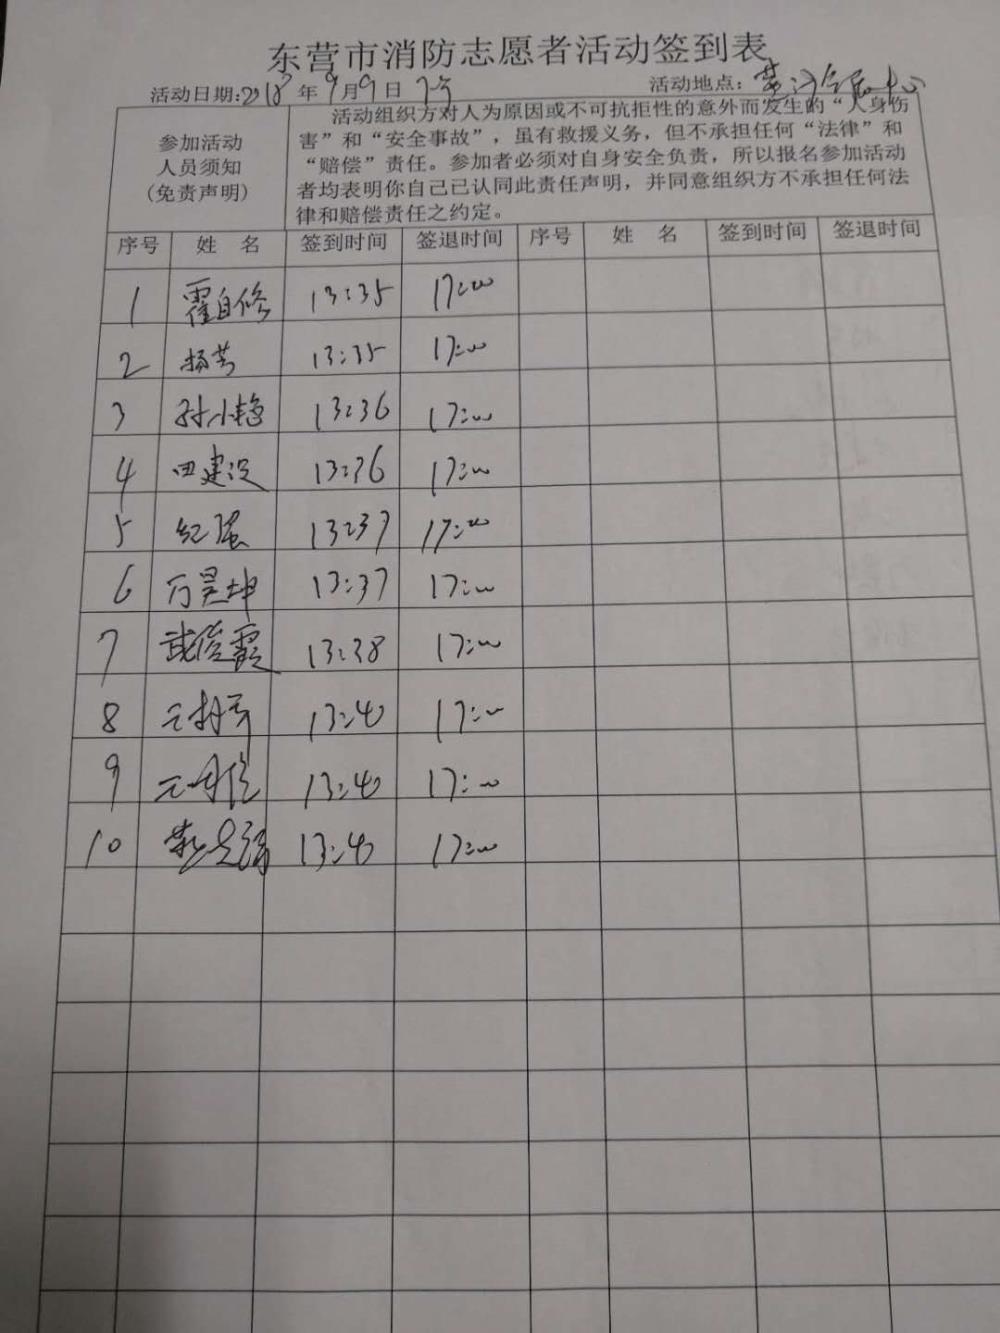 东营市消防志愿者活动签到表
活动日期:2018年9月9日 下午 活动地点:
参加活动
人员须知
(免责声明)
活动组织方对人为原因或不可抗拒性的意外而发生的“人身伤
害”和“安全事故”,虽有救援义务,但不承担任何“法律”和
“赔偿”责任。参加者必须对自身安全负责,所以报名参加活动
者均表明你自己已认同此责任声明,并同意组织方不承担任何法
律和赔偿责任之约定。
序号 姓 名 签到时间 签退时间 序号 姓 名 签到时间 签退时间
1 霍自修 13:35 17:00
2 杨芳 13:35 17:00
3 孙小梅 13:36 17:00
4 田建设 13:36 17:00
5 纪强 13:37 17:00
6 万昊坤 13:37 17:00
7 武俊霞 13:38 17:00
8 13:40 17:00
9 13:40 17:00
10 13:40 17:00